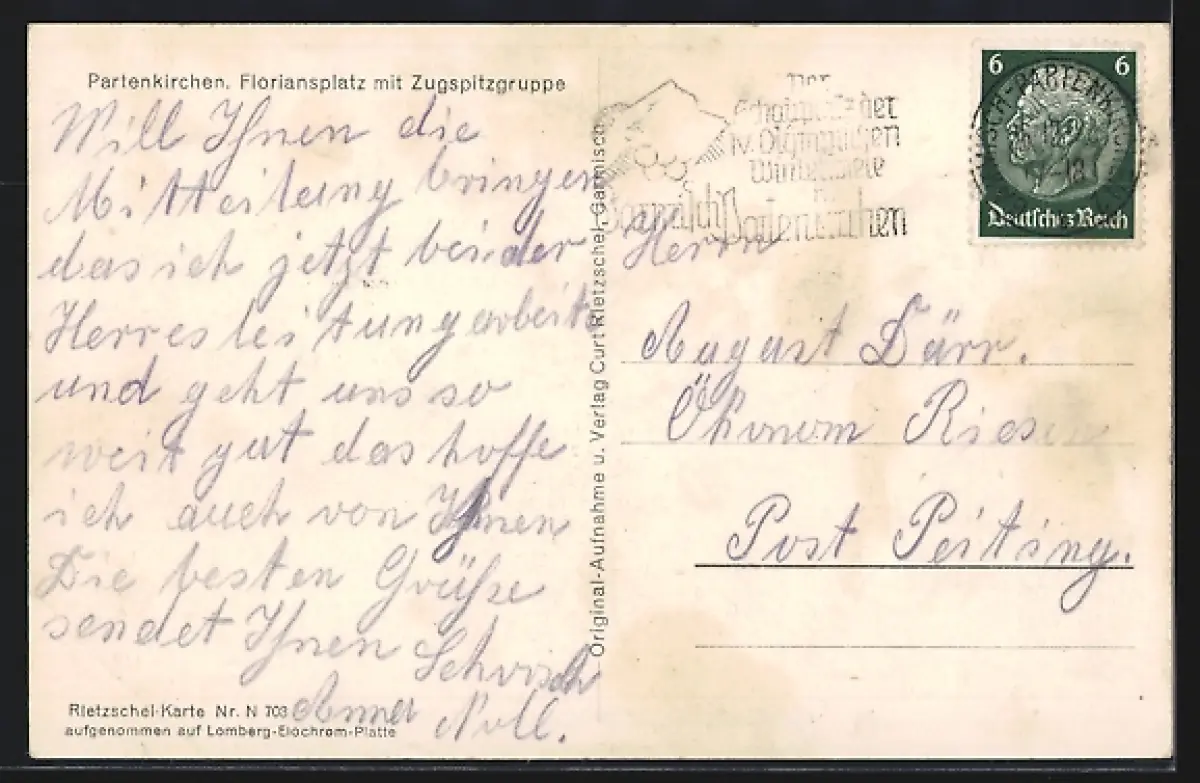 Partenkirchen, Floriansplatz mit Zugspitzgruppe
Will Ihnen die
Mitteilung bringen
das ich jetzt bei der
Herresleitung arbeite
und geht uns so
weit gut das hoffe
ich auch von Ihnen
Die besten Grüße
sendet Ihnen Schorsch
Noll.
Rietzschel-Karte Nr. N 703
aufgenommen auf Lomberg-Eiochrom-Platte
Original-Aufnahme u. Verlag Curt Rietzschel, Garmisch
Der
Schauplatz der
IV. Olympischen
Winterspiele
Garmisch Partenkirchen
6 6
Deutsches Reich
Herrn
August Därr.
Ökonom Riesen
Post Peiting.